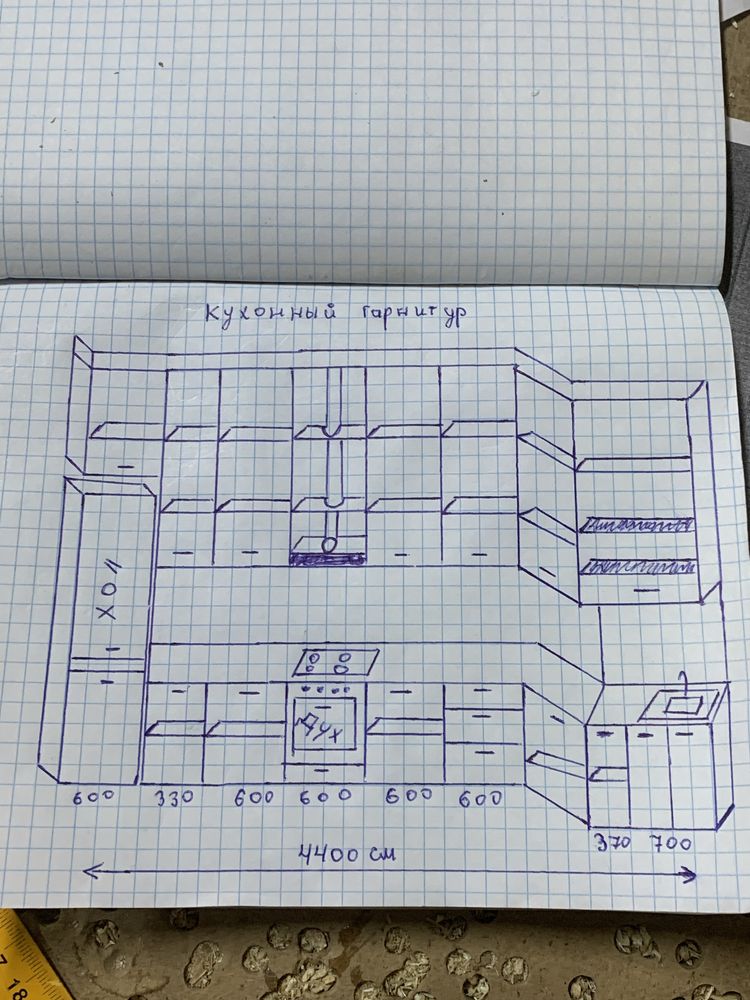 Кухонный гарнитур
ХОЛ
Дух
600 330 600 600 600 600
370 700
4400 см
7
18